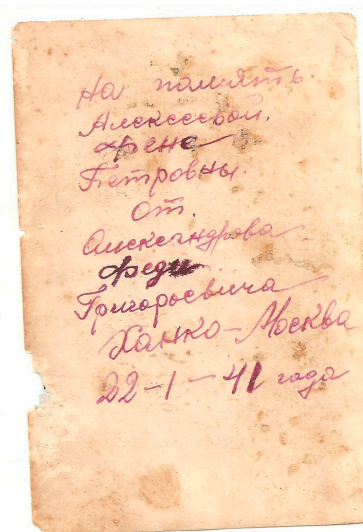 На память
Алексеевой.
Фене
Петровны.
От.
Александрова
Феди
Григорьевича
Ханко-Москва
22-1-41 года